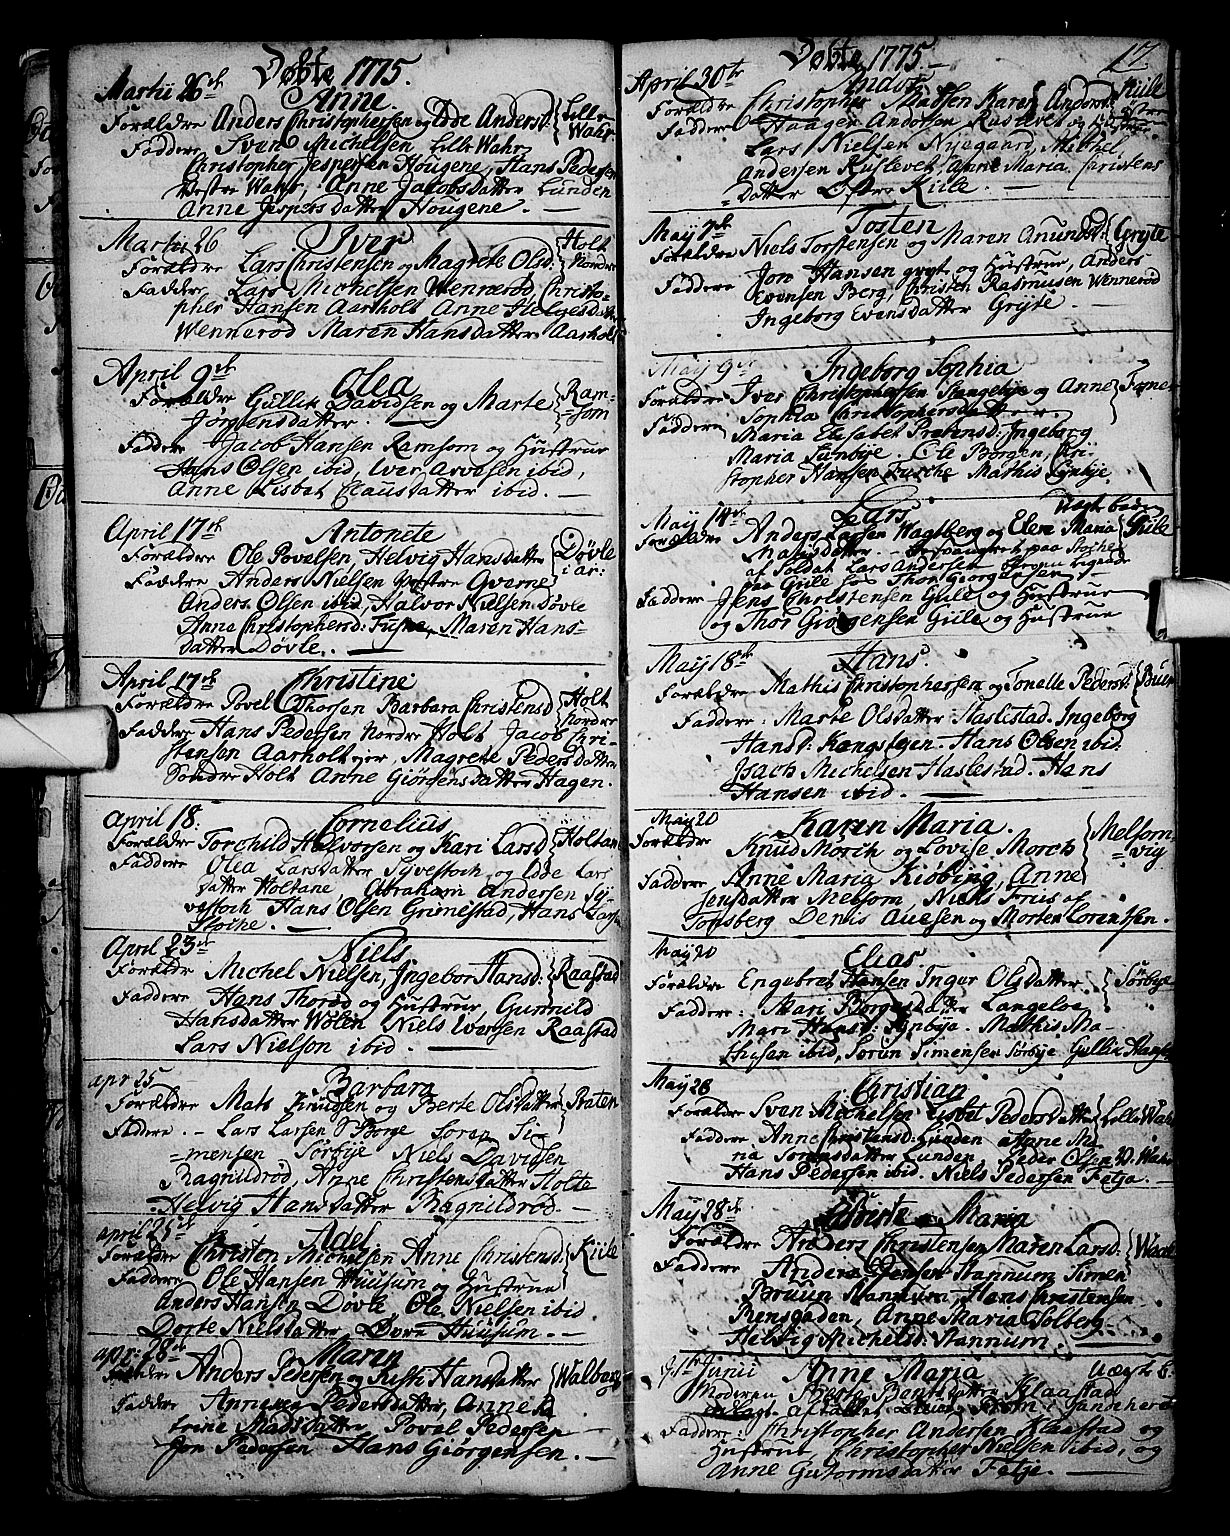 Døbte 1775.
Martii 26de
Anne.
Forældre Anders Christophersen og Idde Andersd: Lille Wahr
Faddere Sven Michelsen Lille Wahr
Christopher Jespersen Hougene, Hans Pedersen
Vestre Wahr, Anne Jacobsdatter Lunden
Anne Jespersdatter Hougene. —
Martii 26
Iver
Forældre Lars Christensen og Magrete Olsd: Holt Nordre
Faddere Lars Michelsen Wennerød Christo-
pher Hansen Aarholt Anne Helgesdatter
Wennerød Maren Hansdatter Aarholt
April 9de
Olea
Forældre Gullik Davidsen og Marte Ram-
Jørgensdatter. — =som
Faddere Jacob Hansen Ramsom og Hustrue
Hans Olsen ibid, Iver Arvesen ibid,
Anne Lisbet Clausdatter ibid. —
April 17de
Antonite
Forældre Ole Povelsen, Helvig Hansdatter Døvle
Faddere Anders Nielsen Vestre Qverne
Anders Olsen ibid, Halvor Nielsen Døvle
Anne Christophersd: Fusne, Maren Hans-
datter Døvle. —
April 17de
Christine
Forældre Povel Thorsen Barbara Christensd Holt Nordre
Faddere Hans Pedersen Nordre Holt Jacob Chri-
stensen Aarholt, Magrete Pedersdatter
Søndre Holt Anne Giørgensdatter Hagen.
April 18.
Cornelius
Forældre Torchild Halvorsen og Kari Larsd Holtan
Faddere Olea Larsdatter Syvestoch og Idde Lars
datter Holtane, Abraham Andersen Sy-
vestoch Hans Olsen Grimestad, Hans Larsen
Stoche. —
April 23de
Niels
Forældre Michel Nielsen, Ingebor Hansd: Raastad
Faddere Hans Thorød og Hustrue, Gunnild
Hansdatter Wølen Niels Iversen Raastad
Lars Nielsen ibid. —
apr 25
Barbara
Forældre Mats Knudsen og Berte Olsdatter Braten
Faddere. - Lars Larsen Borge Søren Si-
=mensen Sørbye Niels Davidsen
Ragnildrød, Anne Christensdatter Holte
Helvig Hansdatter Ragnildrød.
april 25de
Adel
Forældre Christen Michelsen Anne Christensd: Kiile
Faddere Ole Hansen Huusum og Hustrue
Anders Hansen Døvle, Ole Nielsen ibid
Dorte Nielsdatter Huusum. —
apr: 28de
Maren
Anders Pedersen og Hansdatter Walberg
Faddere Pedersdatter, Anne
trine Madsdatter Povel Pedersen
Jon Pedersen Hans Giørgensen. —
Døbte 1775. 17.
April 30te
Anders
Forældre Christopher Madsen Karen Andersd: Kiile
Faddere Haagen Andersen Ruslevet og Hustrue
Lars Nielsen Nyegaard, Michel
Andersen Ruslevet, Anne Maria Christens
=Datter Østre Kiile. —
May 7de
Tosten
Forældre Niels Torstensen og Maren Anundsd: Gryte
Faddere Jon Hansen gryt og Hustrue, Anders
Evensen Berg, Christen Rasmusen Wennerød
Ingeborg Evensdatter Gryte.
May 9de
Ingeborg Sophia
Forældre Iver Christophersen Stangebye og Anne
Sophia Christophersdatter
Faddere Maria Elisabet Prebensd, Ingeborg
Maria Tunbye. Ole Borgen, Chri-
stopher Hansen Mathis Lynbye.
May 14de
Lars Uægte barn
Forældre Anders Larsen Waglberg og Elen Maria Giile
paa Stoche
af Soldat Lars Andersen
paa Giile hos Thor Giørgensen
Faddere Jens Christensen Guld og Hustrue
og Thor Giørgensen Giile og Hustrue
May 18de
Hans.
Forældre Mathis Christophersen og Tonette Pedersd: Bruun
Faddere: Marte Olsdatter Haslestad. Ingeborg
Hansd: Kongsteen. Hans Olsen ibid.
Isach Michelsen Haslestad. Hans
Hansen ibid. —
May 20
Karen Maria.
Forældre Knud Morch og Lovise Morch Melsom-
=vig
Faddere Anne Maria Kiøbing, Anne
Jensdatter Melsom, Niels Friis af
Tonsberg Denis Auesen og Morten Lorentsen.
May 20
Elias
Forældre Engebret Hansen Inger Olsdatter. Sørbye
Faddere: Mari Borgesdatter Langeloe
Mari Hansd: Lynbye. Mathis Ma-
thisen ibid, Sørun Simensen Sørbye Gullik Hansen
May 28
Christian
Forældre Sven Michelsen Lisbet Pedersdatter Lille Wahr
Faddere Anne Christensd: Lunden Anne Ma-
ria Sørensdatter Lunden Peder Olsen W. Wahr
Hans Pedersen ibid. Niels Pedersen Fetja. —
May 28de
Maria
Forældre Anders Christensen Maren Larsd:
Faddere Anders Jensen Stannum Simen
Bruun Stannum, Hans Christensen
Rensgaden, Anne Maria Solberg
Helvig Michelsd: Stannum.
Junii
Anne Maria Uægte b.
Moderen Berte Bentsdatter Klaastad
udlagt
Faddere: Christopher Andersen Klaastad og
Hustrue Christopher Nielsen ibid, og
Anne Gutormsdatter Fetje. —